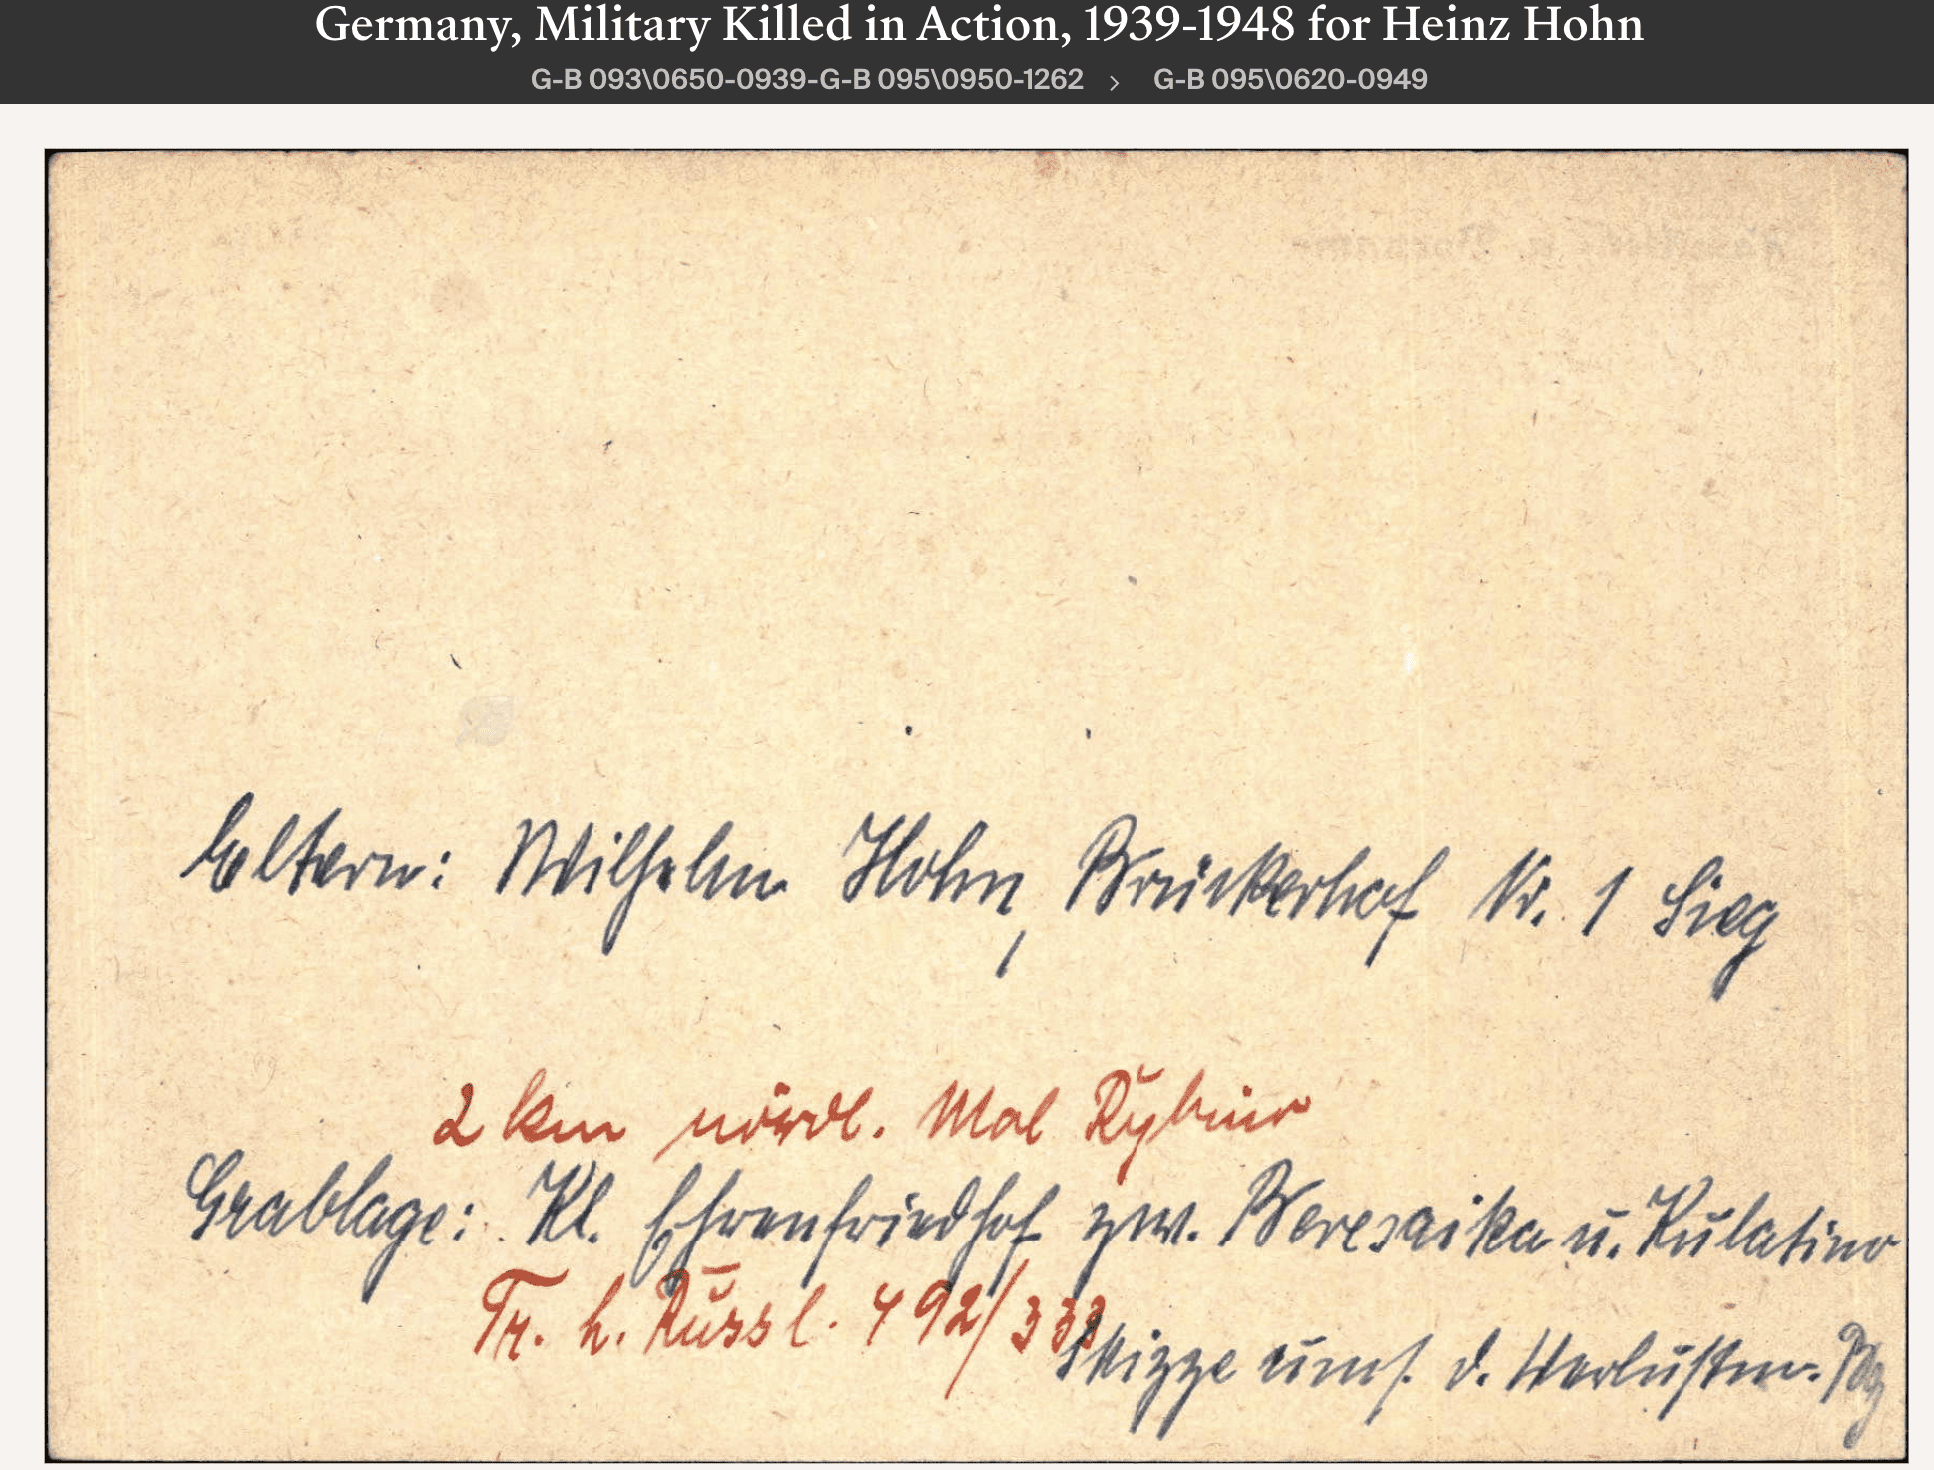 Germany, Military Killed in Action, 1939-1948 for Heinz Hohn
G-B 093\0650-0939-G-B 095\0950-1262 › G-B 095\0620-0949
Eltern: Wilhelm Hohn, Brückerhof Nr. 1 Sieg
2 km nördl. Mal Rybino
Grablage: Kl. Ehrenfriedhof zw. Beresaika u. Kulatino
Tr. h. Russl. 492/333
Skizze ums. d. Verlustm.